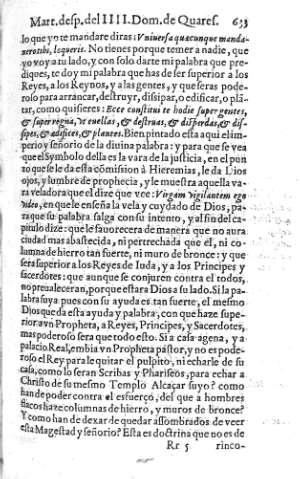 Mart. desp. del IIII. Dom. de Quares. 633
lo que yo te mandare diras: Vniuersa quæcunque manda-
uero tibi, loqueris. No tienes porque temer a nadie, que
yo voy a tu lado, y con solo darte mi palabra que pre-
diques, te doy mi palabra que has de ser superior a los
Reyes, a los Reynos, y a las gentes, y que seras pode-
roso para arrancar, destruyr, dissipar, o edificar, o plã-
tar, como quisieres: Ecce constitui te hodie super gentes,
& super regna, vt euellas, & destruas, & disperdas, & dis-
sipes, & ædifices, & plantes. Bien pintado esta aqui el im-
perio y señorio de la diuina palabra: y para que se vea
que el Symbolo della es la vara de la justicia, en el pun
to que se le da esta cõmission à Hieremias, le da Dios
ojos, y lumbre de prophecia, y le muestra aquella va-
ra veladora que el dize que vee: Virgam vigilantem ego
video, en que le enseña la vela y cuydado de Dios, pa-
ra que su palabra salga con su intento, y al fin del ca-
pitulo dize: que le fauorecera de manera que no aura
ciudad mas abastecida, ni pertrechada que el, ni co-
lumna de hierro tan fuerte, ni muro de bronze: y que
sera superior a los Reyes de Iuda, y a los Principes y
sacerdotes: que aunque se conjuren contra el todos,
no preualeceran, porque estara Dios a su lado. Si la pa-
labra suya pues con su ayuda es tan fuerte, el mesmo
Dios que da esta ayuda y palabra, con que haze supe-
rior a vn Propheta, a Reyes, Principes, y Sacerdotes,
mas poderoso sera que todo esto. Si a casa agena, y a
palacio Real, embia vn Propheta pastor, y no es pode-
roso el Rey para le quitar el pulpito, ni echarle de su
casa, como lo seran Scribas y Phariseos, para echar a
Christo de su mesmo Templo Alcaçar suyo? como
han de poder contra el esfuerço, del que a hombres
flacos haze columnas de hierro, y muros de bronze?
Y como han de dexar de quedar assombrados de veer
esta Magestad y señorio? Esta es doctrina que no es de
Rr 5 rinco-